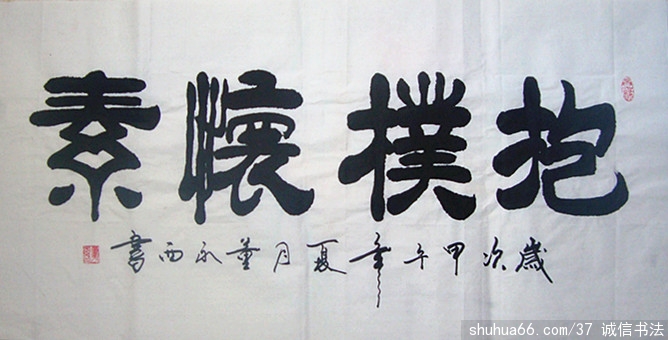 抱樸懷素
歲次甲午年夏月董永西書
shuhua66.com/37 诚信书法